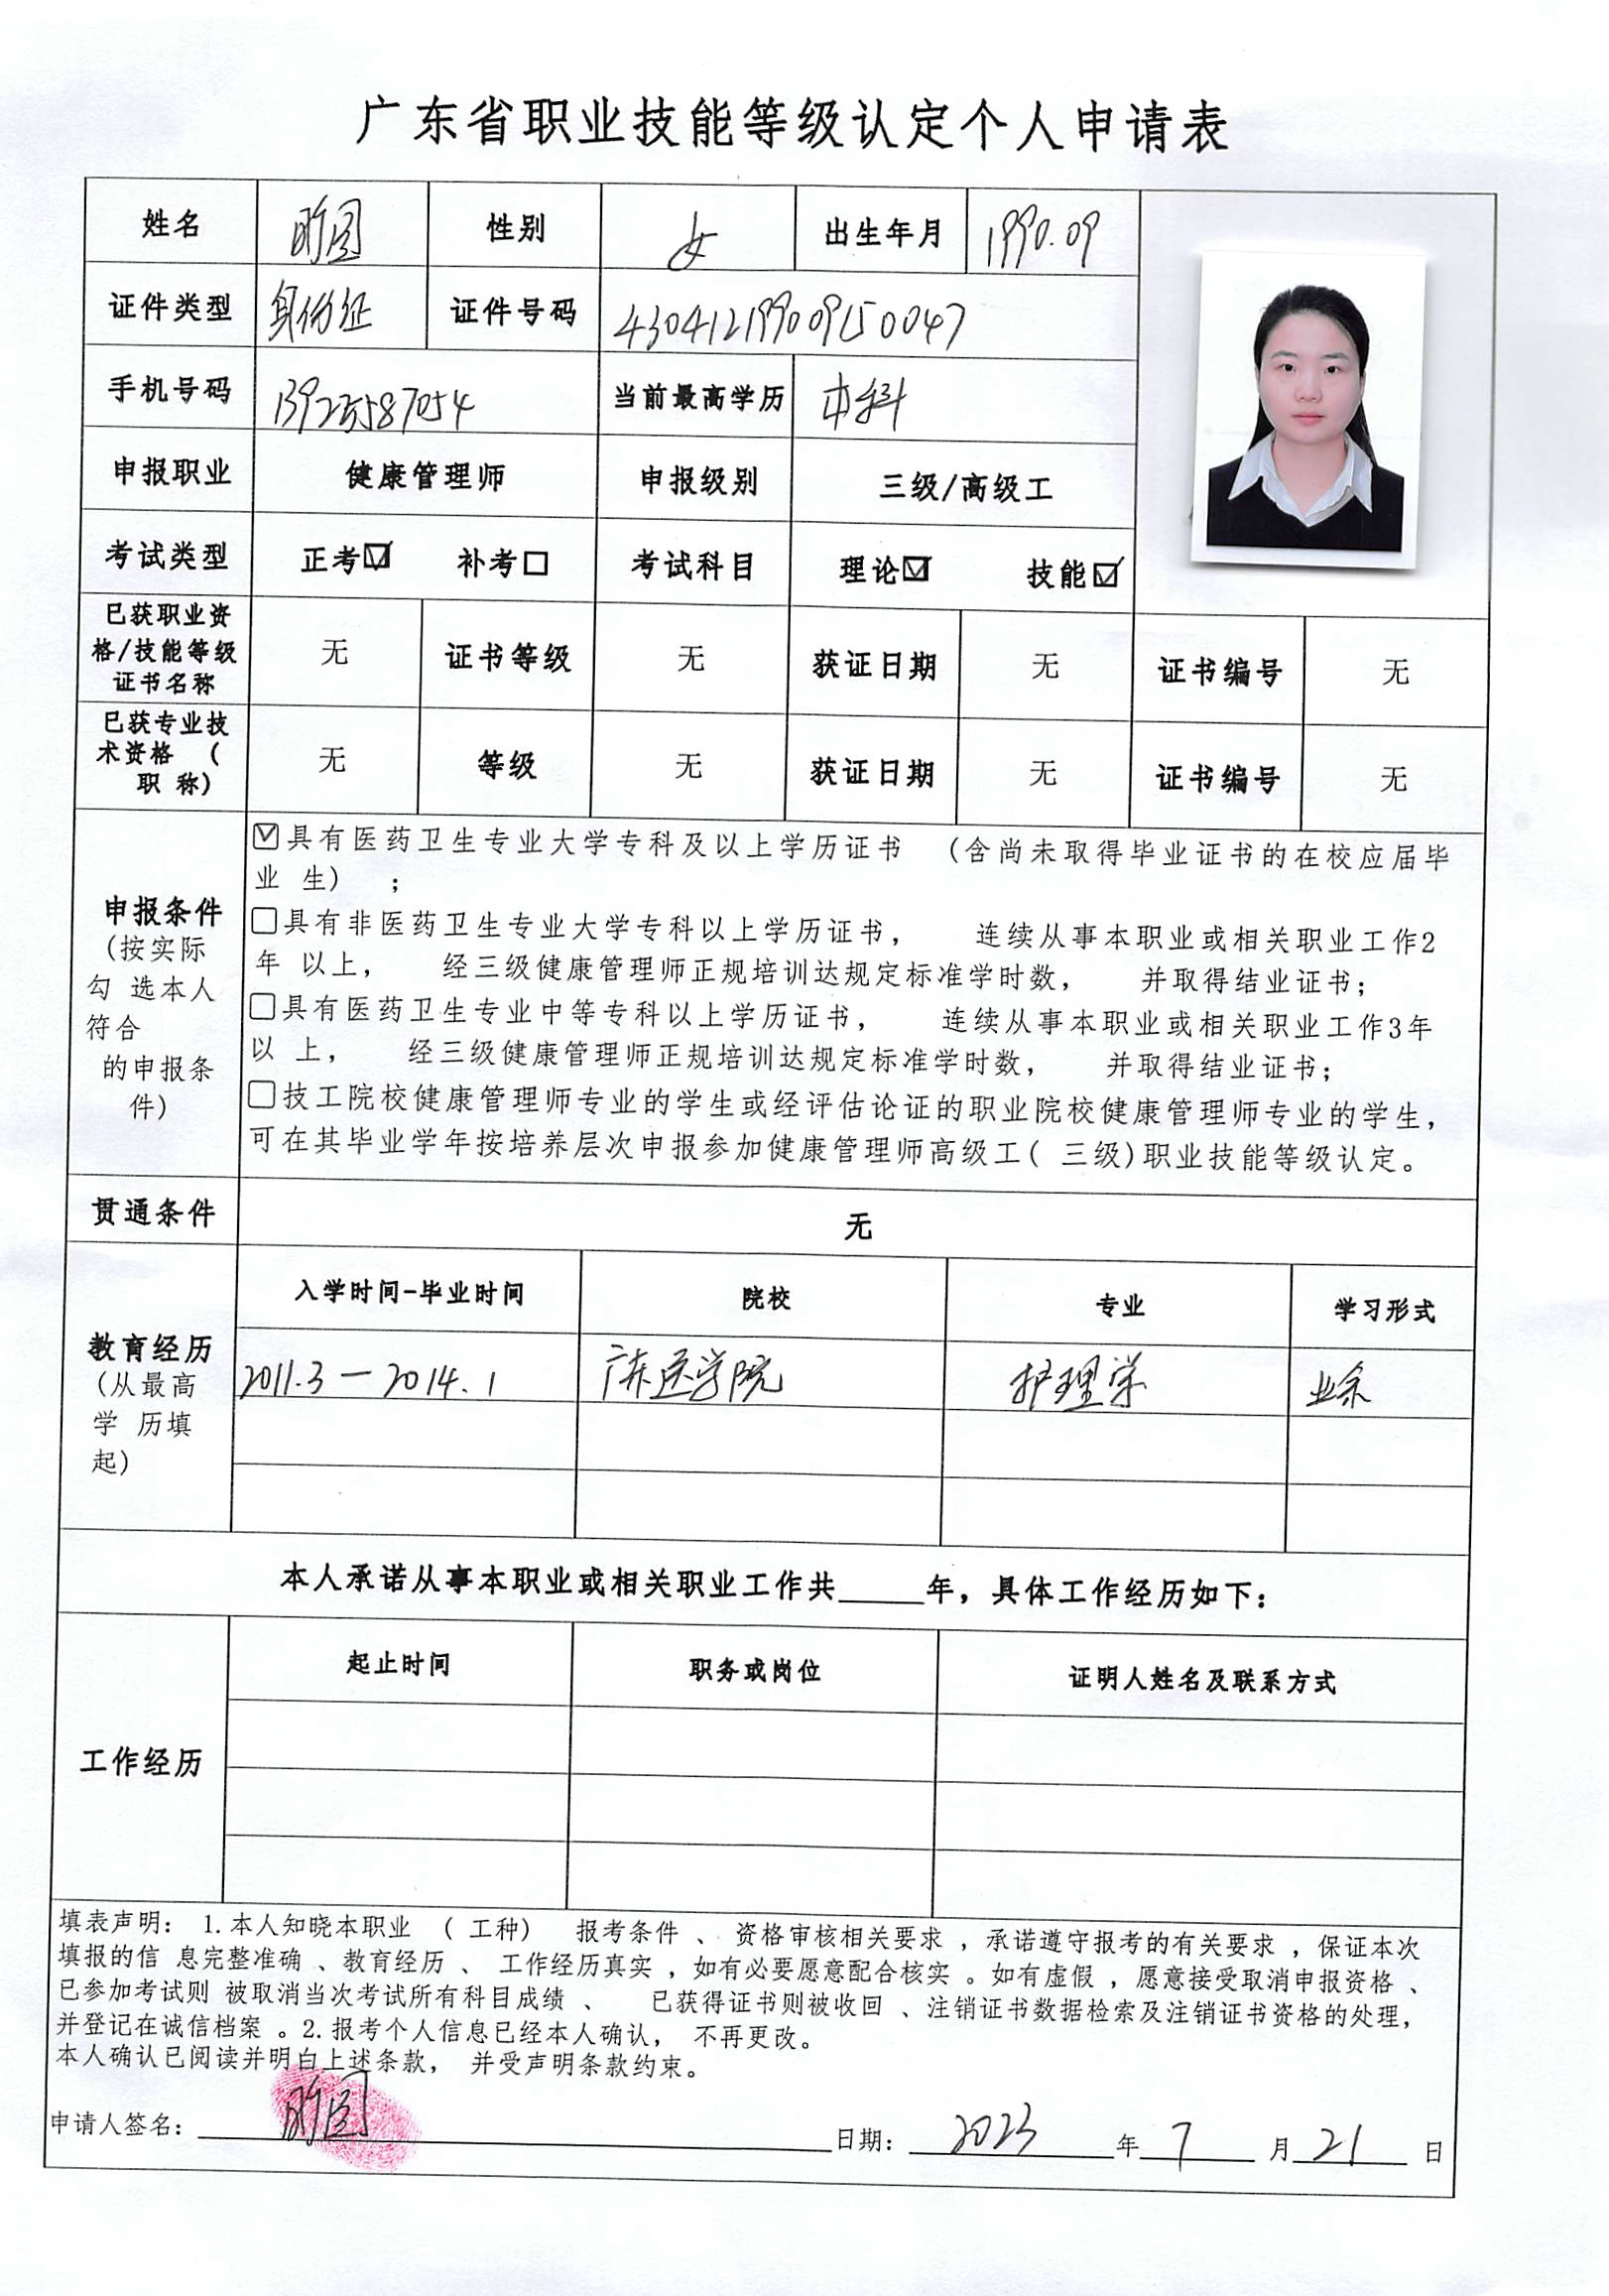 广东省职业技能等级认定个人申请表
姓名 性别 女 出生年月 1990.09
证件类型 身份证 证件号码 430412199009150047
手机号码 当前最高学历 本科
申报职业 健康管理师 申报级别 三级/高级工
考试类型 正考☑ 补考□ 考试科目 理论☑ 技能☑
已获职业资
格/技能等级
证书名称 无 证书等级 无 获证日期 无 证书编号 无
已获专业技
术资格 (
职 称) 无 等级 无 获证日期 无 证书编号 无
申报条件
(按实际
勾 选本人
符合
的申报条
件)
☑具有医药卫生专业大学专科及以上学历证书 (含尚未取得毕业证书的在校应届毕
业 生) ;
□具有非医药卫生专业大学专科以上学历证书, 连续从事本职业或相关职业工作2
年 以上, 经三级健康管理师正规培训达规定标准学时数, 并取得结业证书;
□具有医药卫生专业中等专科以上学历证书, 连续从事本职业或相关职业工作3年
以 上, 经三级健康管理师正规培训达规定标准学时数, 并取得结业证书;
□技工院校健康管理师专业的学生或经评估论证的职业院校健康管理师专业的学生,
可在其毕业学年按培养层次申报参加健康管理师高级工( 三级)职业技能等级认定。
贯通条件 无
教育经历
(从最高
学 历填
起)
入学时间-毕业时间 院校 专业 学习形式
2011.3—2014.1 广东医学院 护理学 业余
本人承诺从事本职业或相关职业工作共_____年，具体工作经历如下：
工作经历
起止时间 职务或岗位 证明人姓名及联系方式
填表声明： 1.本人知晓本职业 ( 工种) 报考条件 、 资格审核相关要求 ，承诺遵守报考的有关要求 ，保证本次
填报的信 息完整准确 、教育经历 、 工作经历真实 ，如有必要愿意配合核实 。如有虚假 ，愿意接受取消申报资格 、
已参加考试则 被取消当次考试所有科目成绩 、 已获得证书则被收回 、注销证书数据检索及注销证书资格的处理，
并登记在诚信档案 。2.报考个人信息已经本人确认， 不再更改。
本人确认已阅读并明白上述条款， 并受声明条款约束。
申请人签名： 日期： 2023 年 7 月 21 日